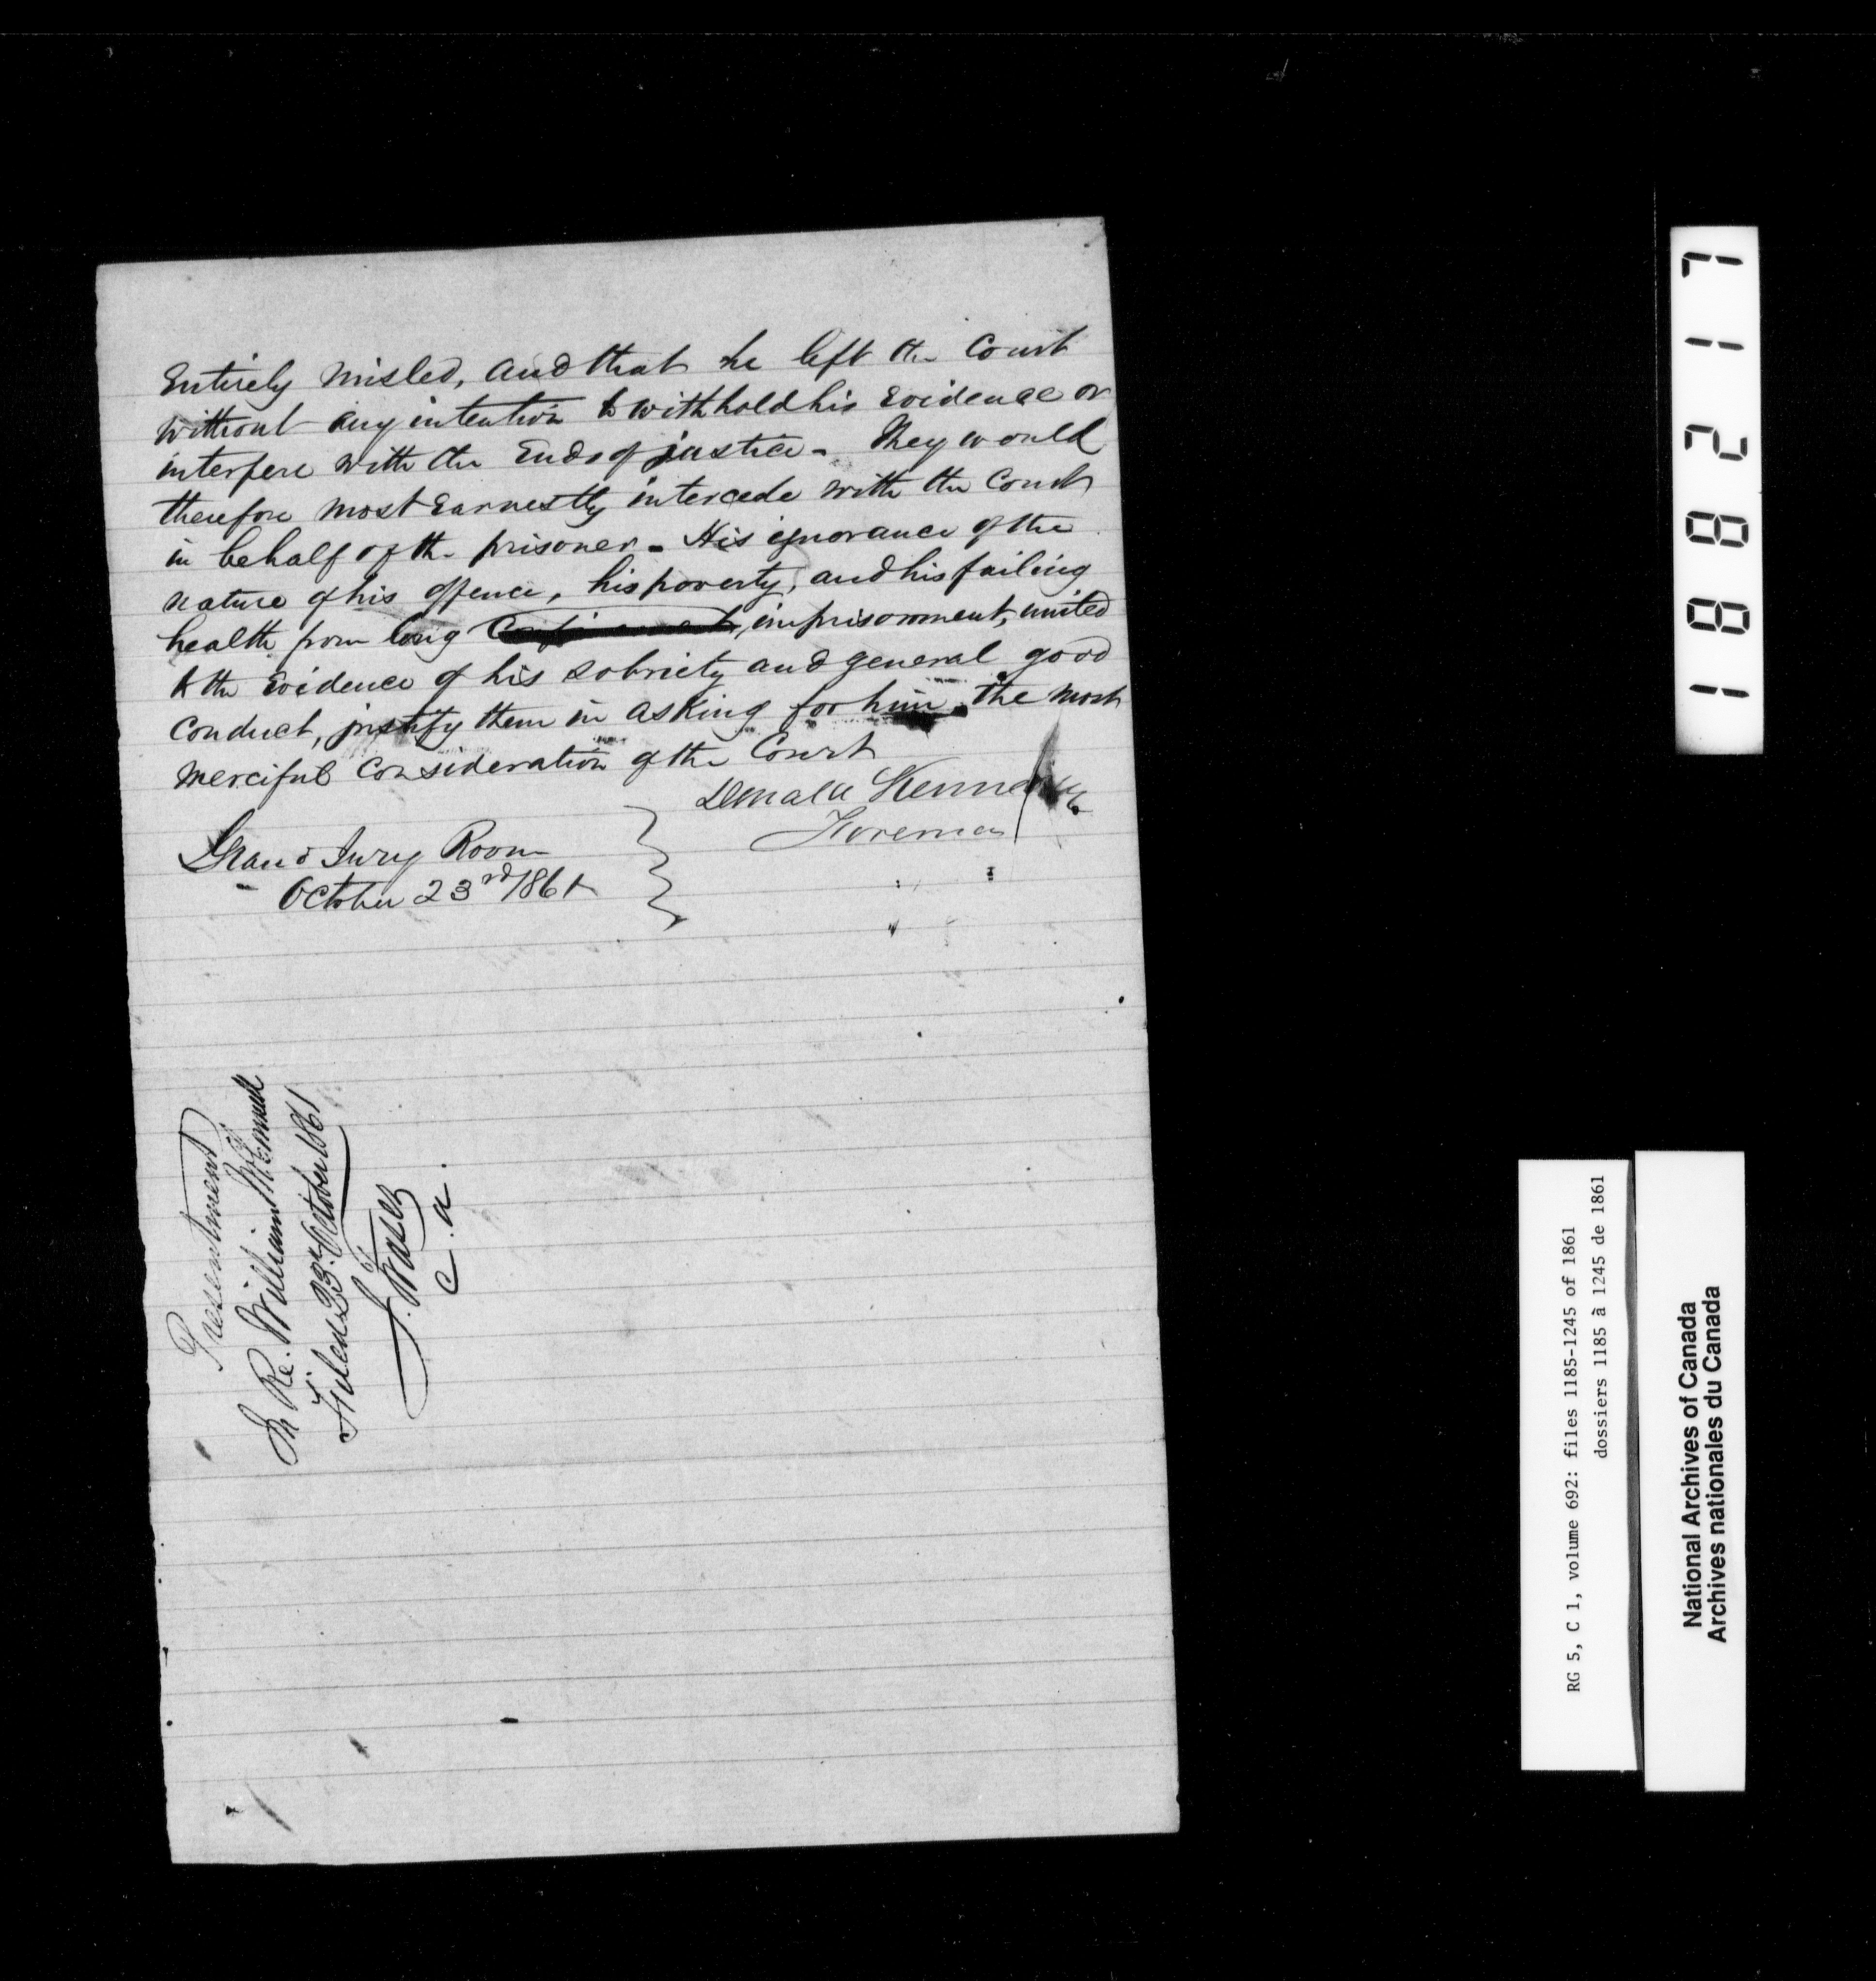 Entirely misled, and that he left the Court
without any intention to withhold his Evidence or
interfere with the Ends of justice - They would
therefore most Earnestly intercede with the Court
in behalf of the prisoner - His ignorance of the
nature of his offence, his poverty, and his failing
health from long imprisonment, united
to the Evidence of his sobriety and general good
conduct, justify them in asking for him the most
merciful Consideration of the Court
Donald Kennedy
Foreman
Grand Jury Room
October 23rd 1861
Presentment
In Re. William McConnell
Filed 23rd October 1861
J. Fraser
C. a.
188217
RG 5, C 1, volume 692: files 1185-1245 of 1861
dossiers 1185 à 1245 de 1861
National Archives of Canada
Archives nationales du Canada